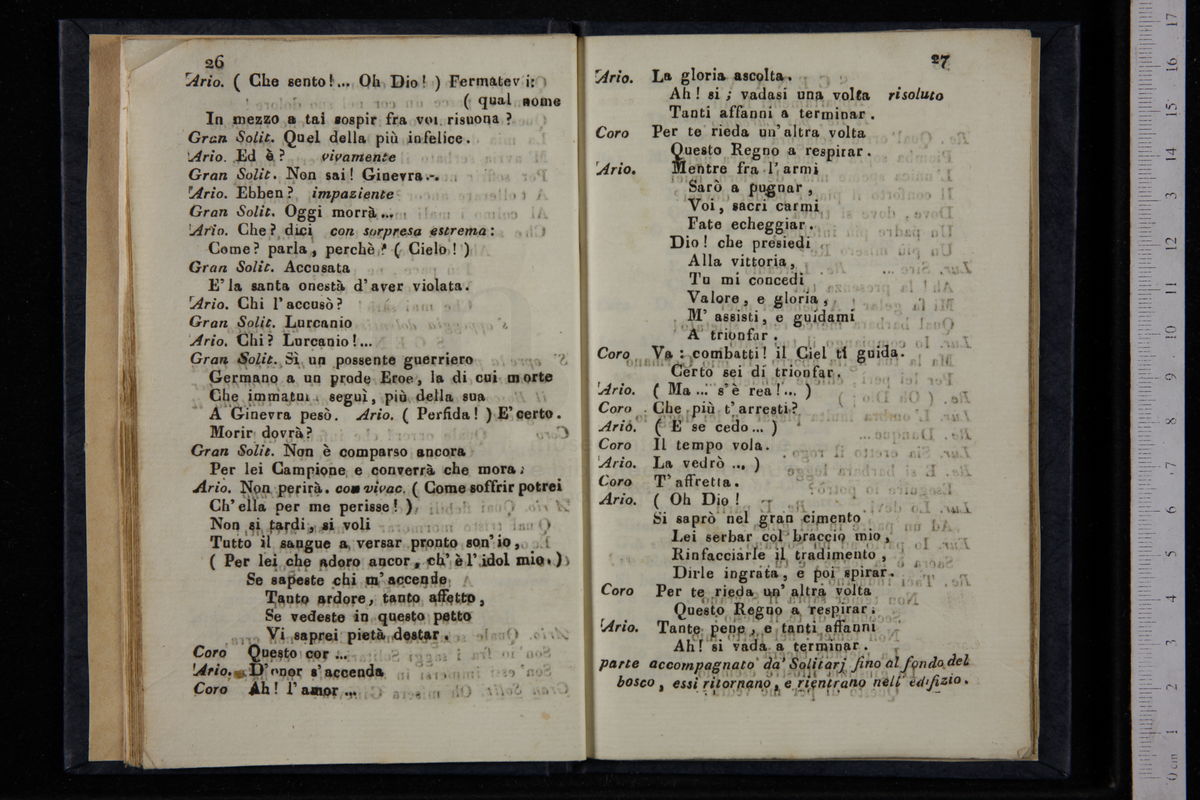 26
Ario. ( Che sento!... Oh Dio! ) Fermatevi:
( qual nome
In mezzo a tai sospir fra voi risuona ?
Gran Solit. Quel della più infelice.
Ario. Ed è ? vivamente
Gran Solit. Non sai! Ginevra...
Ario. Ebben? impaziente
Gran Solit. Oggi morrà...
Ario. Che? dici con sorpresa estrema:
Come? parla, perchè? ( Cielo! )
Gran Solit. Accusata
E' la santa onestà d'aver violata.
Ario. Chi l'accusò?
Gran Solit. Lurcanio
Ario. Chi? Lurcanio!...
Gran Solit. Sì un possente guerriero
Germano a un prode Eroe, la di cui morte
Che immatui seguì, più della sua
A Ginevra pesò. Ario. ( Perfida! ) E'certo.
Morir dovrà?
Gran Solit. Non è comparso ancora
Per lei Campione e converrà che mora;
Ario. Non perirà. con vivac. ( Come soffrir potrei
Ch' ella per me perisse! )
Non si tardi, si voli
Tutto il sangue a versar pronto son'io,
( Per lei che adoro ancor, ch' è l' idol mio. )
Se sapeste chi m'accende
Tanto ardore, tanto affetto,
Se vedeste in questo petto
Vi saprei pietà destar.
Coro Questo cor ...
Ario. D'onor s'accenda
Coro Ah! l'amor ...
27
Ario. La gloria ascolta.
Ah! si ; vadasi una volta risoluto
Tanti affanni a terminar.
Coro Per te rieda un'altra volta
Questo Regno a respirar.
Ario. Mentre fra l'armi
Sarò a pugnar,
Voi, sacri carmi
Fate echeggiar.
Dio! che presiedi
Alla vittoria,
Tu mi concedi
Valore, e gloria,
M' assisti, e guidami
A trionfar.
Coro Va : combatti! il Ciel ti guida.
Certo sei di trionfar.
Ario. ( Ma ... s'è rea!... )
Coro Che più t'arresti?
Ario. ( E se cedo... )
Coro Il tempo vola.
Ario. La vedrò ... )
Coro T' affretta.
Ario. ( Oh Dio !
Si saprò nel gran cimento
Lei serbar col braccio mio,
Rinfacciarle il tradimento,
Dirle ingrata, e poi spirar.
Coro Per te rieda un' altra volta
Questo Regno a respirar.
Ario. Tante pene, e tanti affanni
Ah! si vada a terminar.
parte accompagnato da' Solitarj fino al fondo del
bosco, essi ritornano, e rientrano nell' edifizio.